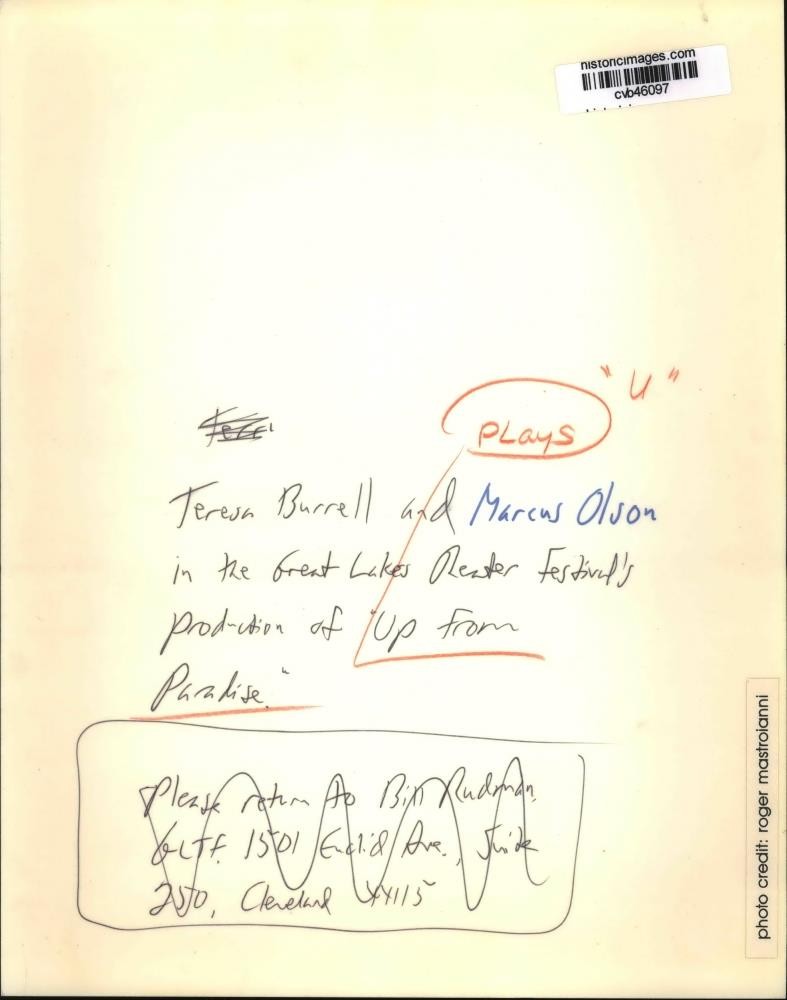 historicimages.com
cvb46097
"U"
PLays
Teresa Burrell and Marcus Olson
in the Great Lakes Theater Festival's
production of "Up From
Paradise."
Please return to Bill Rudman,
GLTF, 1501 Euclid Ave., Suite
250, Cleveland 44115
photo credit: roger mastroianni